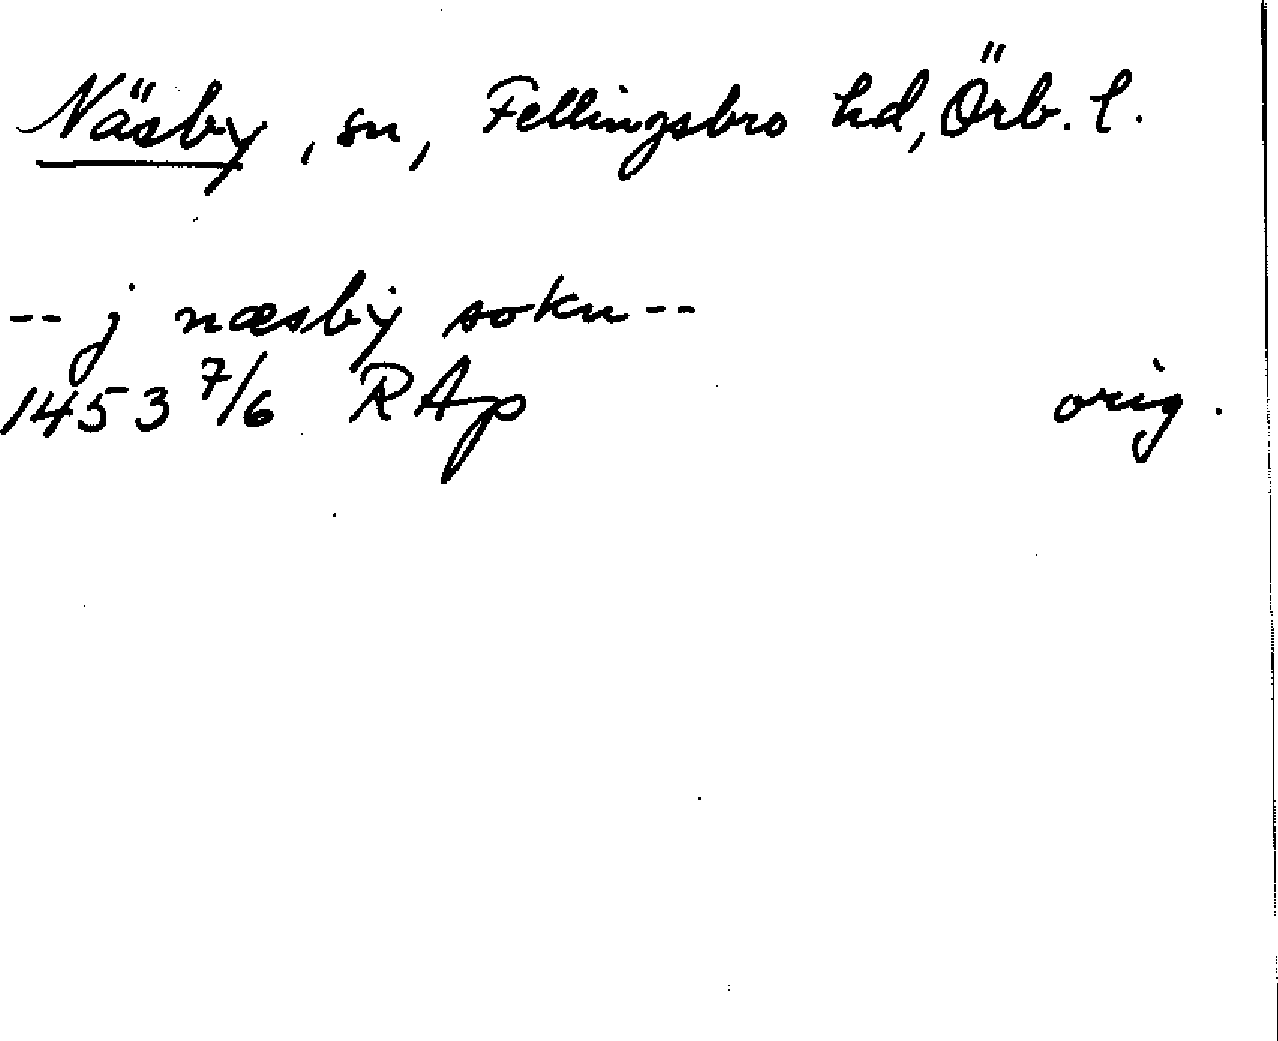 Näsby, sn, Fellingsbro hd, Örb. l.
-- j næsbẏ sokn --
1453 7/6 RAp orig.